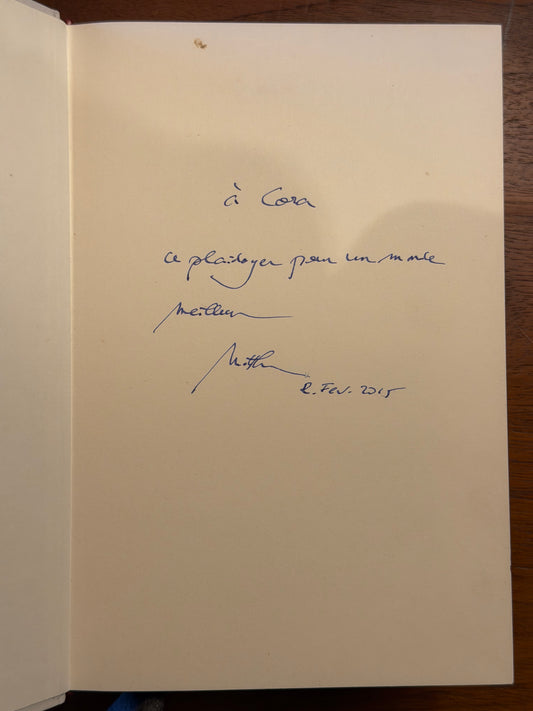 à Cora
ce plaidoyer pour un monde
meilleur
2. Fev. 2015